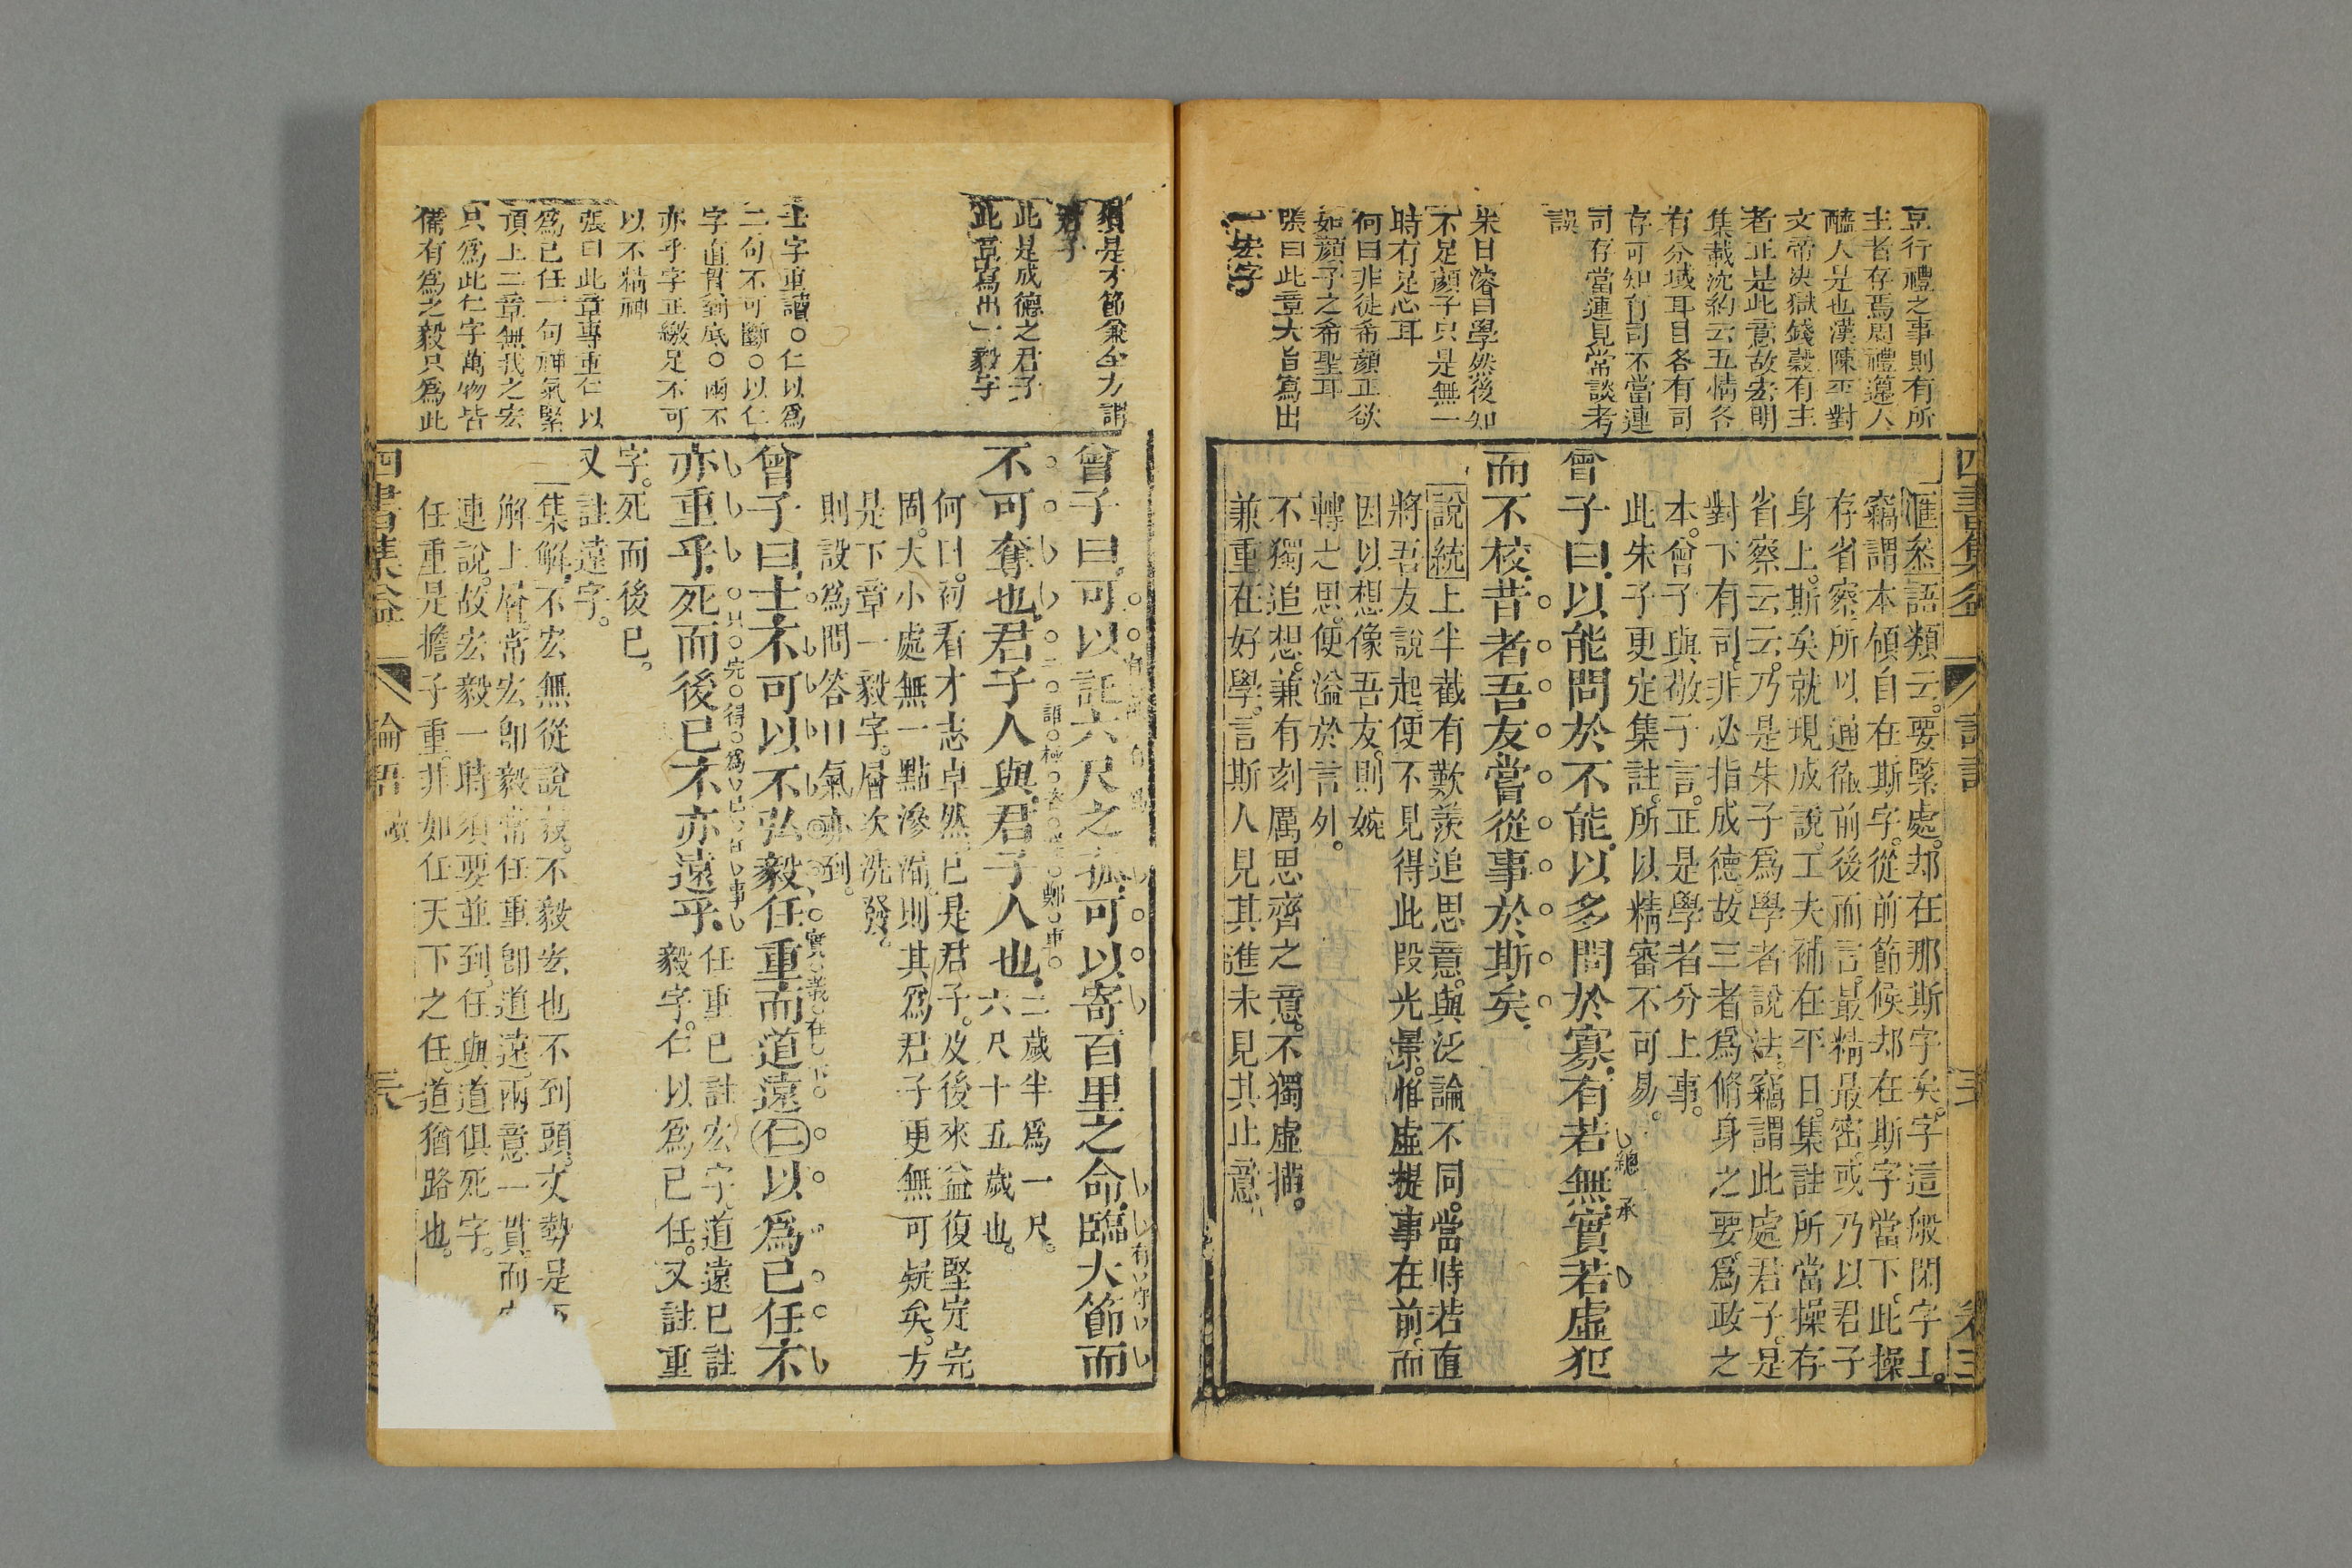 豆行禮之事則有所
主者存焉周禮邊人
醯人是也漢陳平對
文帝決獄錢穀有主
者正是此意故宏明
集載沈約云五情各
有分域耳目各有司
存可知有司不當連
司存當連見常談考
誤
朱曰濬曰學然後知
不足顏子只是無一
時有足心耳
何曰非徒希顏正欲
如顏子之希聖耳
張曰此章大旨寫出
一宏字
匯叅語類云。要緊處。却在那斯字矣。字這般閑字上。
竊謂本領自在斯字。從前節候却在斯字當下。此操
存省察所以通徹前後而言。最精最密。或乃以君子
身上。斯矣就現成說。工夫補在平日。集註所當操存
省察云云。乃是朱子爲學者說法。竊謂此處君子。是
對下有司。非必指成德。故三者爲脩身之要。爲政之
本。曾子與敬子言。正是學者分上事。
此朱子更定集註。所以精審不可易。
曾子曰。以能問於不能。以多問於寡。有若無。實若虛犯
總承
而不校。昔者吾友嘗從事於斯矣。
說統上半截有歎羨追思意。與泛論不同。當時若直
將吾友說起。便不見得此段光景。惟虛提事在前。而
因以想像吾友。則婉
轉之思。便溢於言外。
不獨追想。兼有刻厲思齊之意。不獨虛描。
兼重在好學。言斯人見其進未見其止意。
四書集益
論語
卷三
須是才節兼全方謂
君子
此是成德之君子
此章寫出一毅字
士字重讀○仁以爲
二句不可斷○以仁
字直貫到底○兩不
亦乎字正繳足不可
以不精神
張曰此章專重仁以
爲已任一句神氣緊
頂上二章無我之宏
只爲此仁字萬物皆
備有爲之毅只爲此
曾子曰。可以託六尺之孤。可以寄百里之命。臨大節而
不可奪也。君子人與。君子人也。二歲半爲一尺。
六尺十五歲也。
何曰。初看才志卓然。已是君子。及後來益復堅定完
固。大小處無一點滲漏。則其爲君子更無可疑矣。方
是下章一毅字。層次洗發。
則設爲問答口氣亦到。
曾子曰。士不可以不弘毅。任重而道遠。仁以爲已任。不
亦重乎。死而後已。不亦遠乎。任重已註宏字。道遠已註
毅字。仁以爲已任。又註重
字。死而後已。
又註遠字。
集解。不宏無從說毅。不毅宏也不到頭。文勢是
解上層。常宏卽毅。常任重卽道遠。兩意一貫。而
連說。故宏毅一時須要並到。任與道俱死字。
任重是擔子重。非如任天下之任。道猶路也。
四書集益
論語